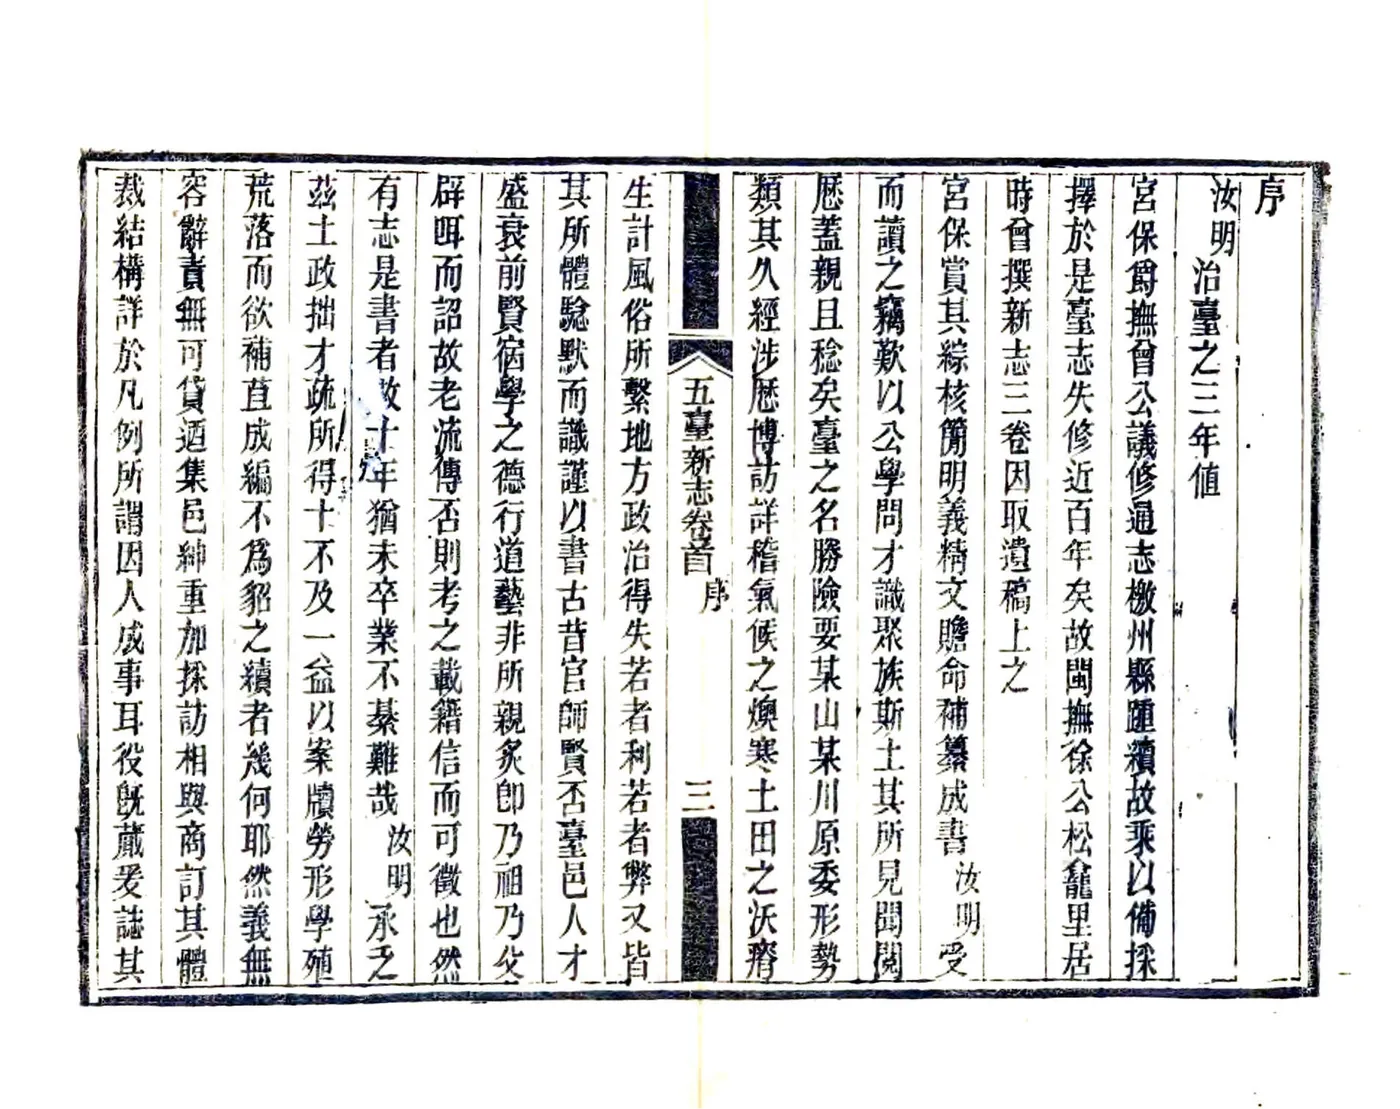 序
汝明治臺之三年值
宮保爵撫曾公議修通志檄州縣踵續故乘以備採
擇於是臺志失修近百年矣故閩撫徐公松龕里居
時曾撰新志三卷因取遺稿上之
宮保賞其綜核簡明義精文贍命補纂成書汝明受
而讀之竊歎以公學問才識聚族斯土其所見聞閱
歷蓋親且稔矣臺之名勝險要某山某川原委形勢
類其久經涉歷博訪詳稽氣候之燠寒土田之沃瘠
五臺新志卷首
序
三
生計風俗所繫地方政治得失若者利若者弊又皆
其所體驗默而識謹以書古昔官師賢否臺邑人才
盛衰前賢宿學之德行道藝非所親炙卽乃祖乃父
辟咡而詔故老流傳否則考之載籍信而可徵也然
有志是書者數十年猶未卒業不綦難哉汝明承乏
茲土政拙才疏所得十不及一益以案牘勞形學殖
荒落而欲補苴成編不爲貂之續者幾何耶然義無
容辭責無可貸迺集邑紳重加採訪相與商訂其體
裁結構詳於凡例所謂因人成事耳役旣蕆爰誌其